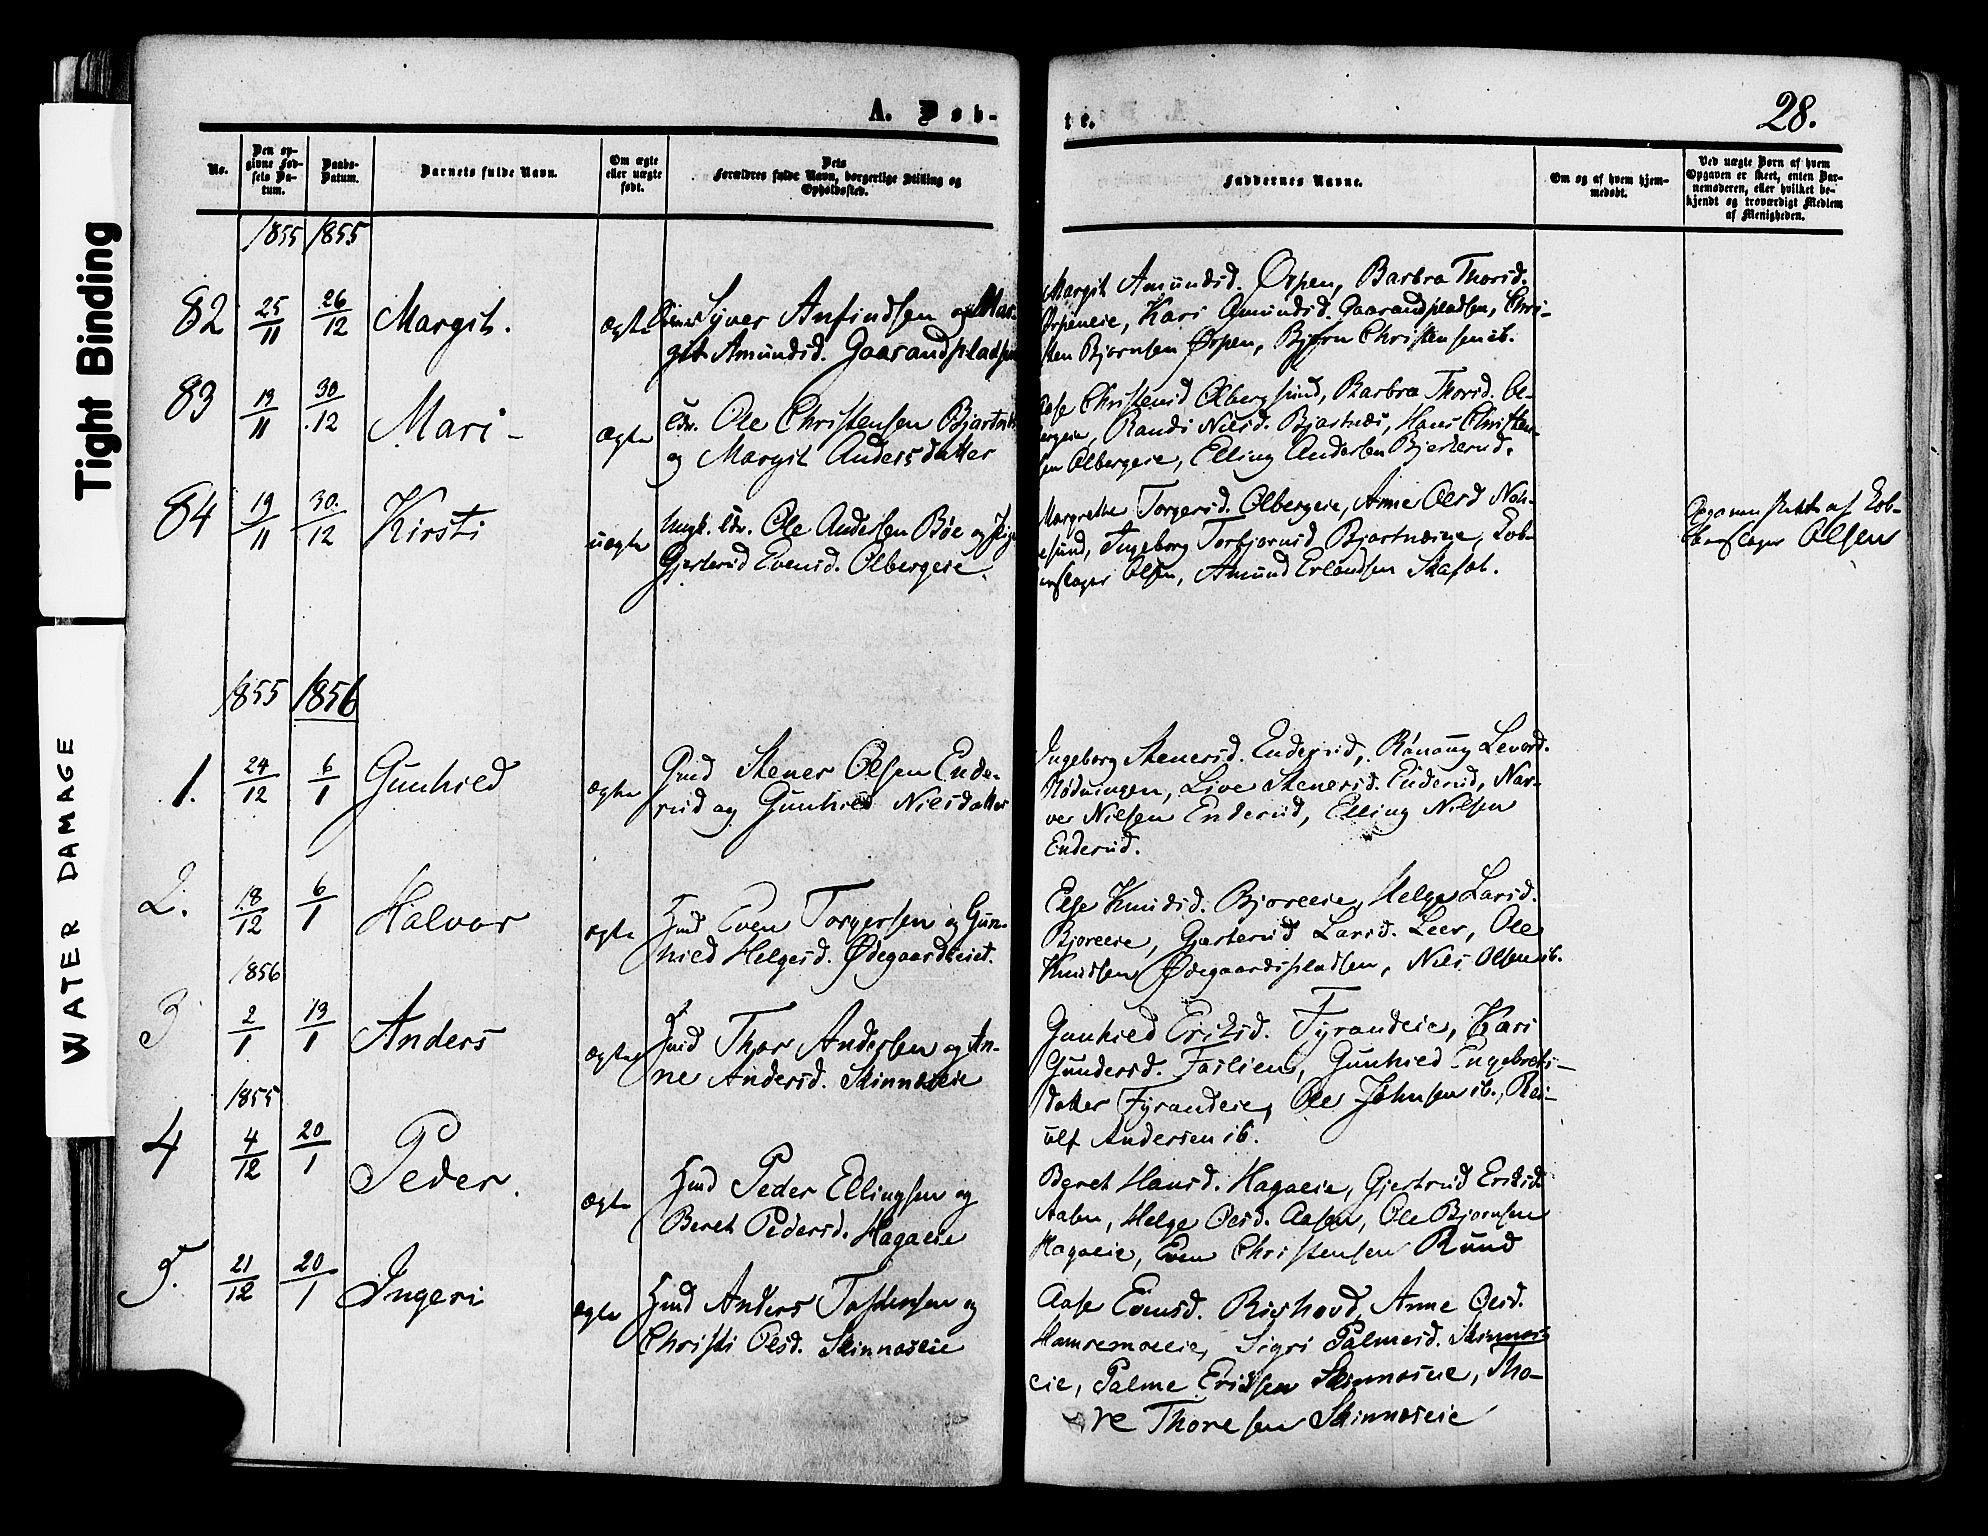 Tight Binding
WATER DAMAGE
A. Døb-
te.
28.
No.
Den op-
givne Fød-
sels Da-
tum.
Daabs-
Datum.
Barnets fulde Navn.
Om ægte
eller uægte
født.
Dets
Forældres fulde Navn, borgerlige Stilling og
Opholdssted.
Faddernes Navne.
Om og af hvem hjem-
medøbt.
Ved uægte Børn af hvem
Opgaven er skeet, enten Bar-
nemoderen, eller hvilket be-
kjendt og troværdigt Medlem
af Menigheden.
1855 1855
82 25/11 26/12 Margit. ægte Syver Anfindsen og Mar-
git Amundsd. Gaarandpladsen
Margit Amundsd. Ørpen, Barbra Thorsd.
Ørpeneie, Kari Amundsd. Gaarandpladsen, Chri-
sten Bjørnsen Ørpen, Bjørn Christensen ib.
83 13/11 30/12 Mari - ægte Ole Christensen Bjertnæs
og Margit Andersdatter
Aase Christensd Olbergsund, Barbra Thorsd. Ol-
bergeie, Randi Nilsd. Bjertnæs, Hans Christen-
sen Olbergeie, Elling Andersen Bjerterud.
84 19/11 30/12 Kirsti uægte Ungk. Ole Andersen Bøe og Pige
Gjertrud Evensd. Olbergeie.
Margrethe Torgersd. Olbergeie, Anne Olsd Nab-
esund, Ingeborg Torbjørnsd Bjertnæseie, Kob-
berslager Olsen, Amund Erlandsen Skafot.
Opgaven skeet af Kob-
berslager Olsen
1855 1856
1. 24/12 6/1 Gunhild ægte Gmd Stener Olsen Ende-
rud og Gunhild Nilsdatter
Ingeborg Stenersd. Enderud, Rønaug Levord.
Rødningen, Live Stenersd. Enderud, Nar-
ve Nilsen Enderud, Elling Nilsen
Enderud.
2. 18/12 6/1 Halvor ægte Hmd Even Torgersen og Gun-
hild Helgesd. Ødegaardseiet.
Else Knudsd. Bjoreeie, Helge Larsd.
Bjoreeie, Gjertrud Larsd. Leer, Ole
Knudsen Ødegaardspladsen, Nils Olsen ib.
1856
3 2/1 13/1 Anders ægte Hmd Thor Andersen og An-
ne Andersd. Skinnæseie
Gunhild Eriksd. Fyrandeie, Kari
Gundersd. Faslien, Gunhild Engebrets-
datter Fyrandeie, Ole Johnsen ib., Rei-
ulf Andersen ib.
1855
4 4/12 20/1 Peder. ægte Hmd Peder Ellingsen og
Beret Pedersd. Hagaeie
Beret Hansd. Hagaeie, Gjertrud Eriksd.
Aasen, Helge Olsd. Aasen, Ole Bjørnsen
Hagaeie, Even Christensen Ruud
5. 21/12 20/1 Ingeri ægte Hmd Anders Tostensen og
Christi Olsd. Skinnæseie
Aase Evensd. Rishovd, Anne Olsd.
Hamremoeeie, Sigri Palmesd. Skinnæs-
eie, Palme Eriksen Skinnæseie, Tho-
re Thoresen Skinnæseie